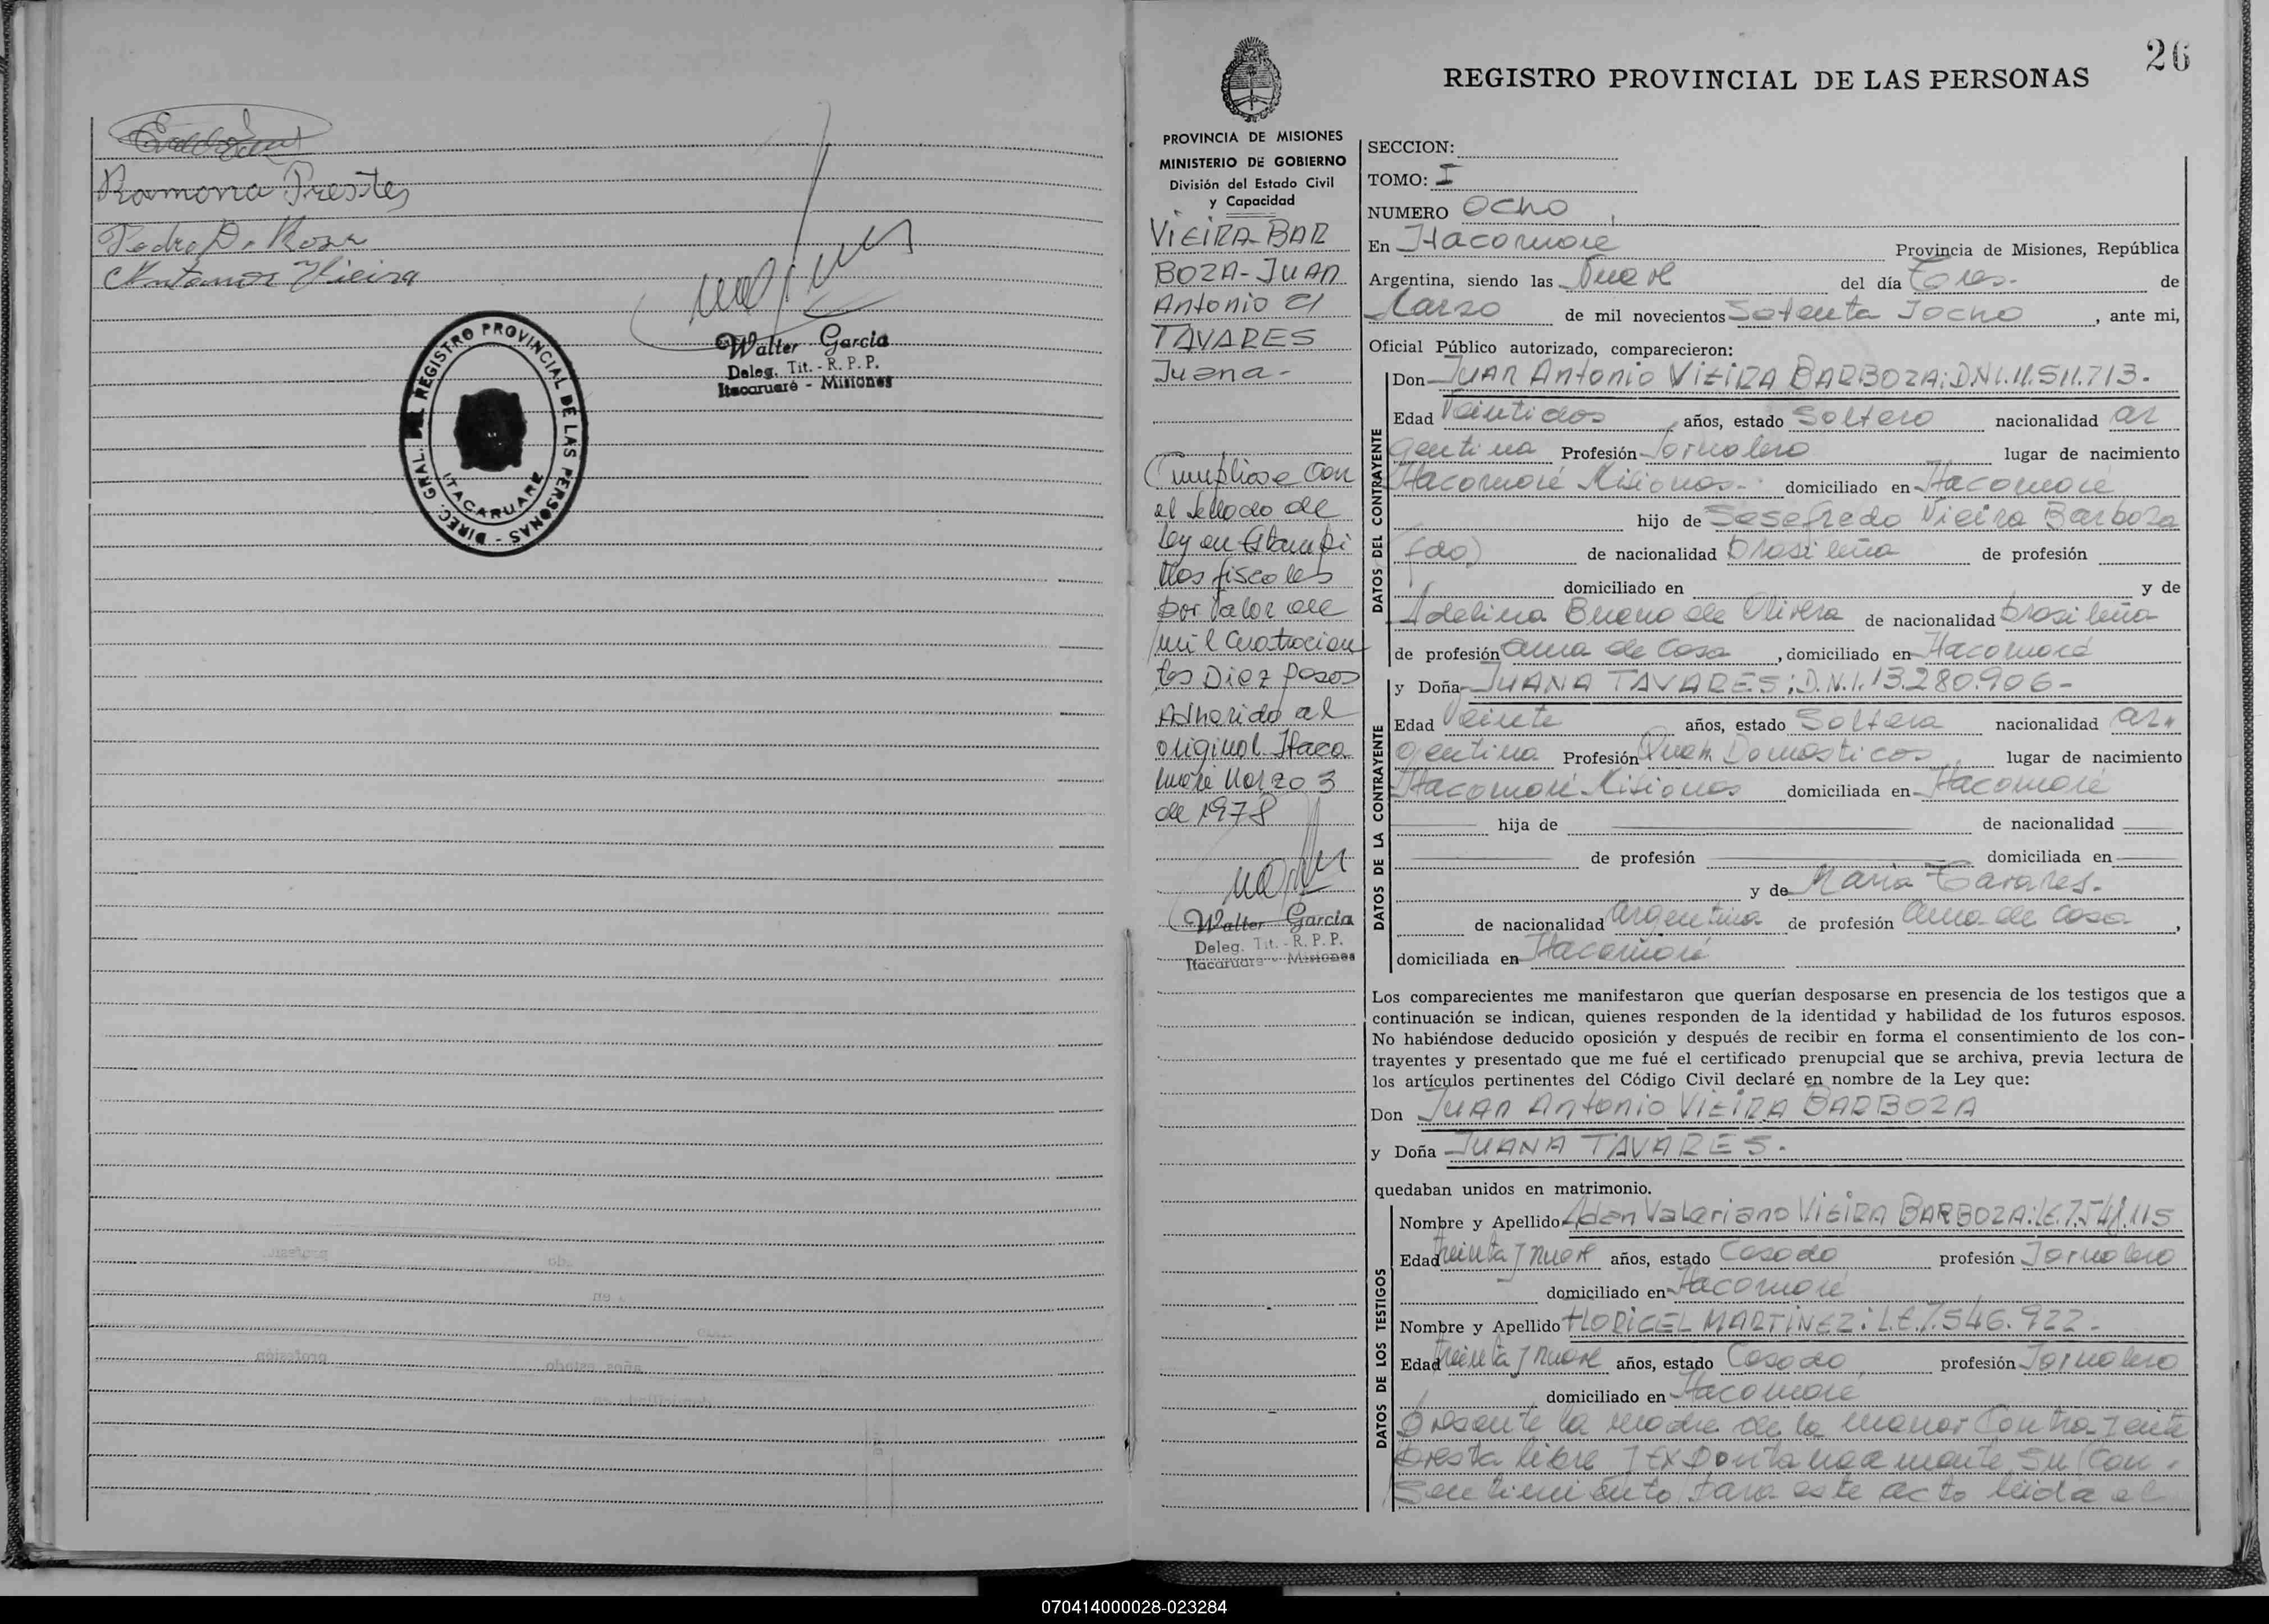 Ramona Prestes
Pedro Da Rosa
Antonio Vieira
DIREC. GRAL. DEL REGISTRO PROVINCIAL DE LAS PERSONAS -
ITACARUARE
Walter Garcia
Deleg. Tit. - R. P. P.
Itacaruaré - Misiones
26
REGISTRO PROVINCIAL DE LAS PERSONAS
PROVINCIA DE MISIONES
MINISTERIO DE GOBIERNO
División del Estado Civil
y Capacidad
VIEIRA-BAR
BOZA-JUAN
Antonio c/
TAVARES
Juana-
Cumpliose con
el sellado de
ley en Estampi
llas fiscales
por valor de
mil cuatrocien
tos Diez pesos
Adherido al
original Itaca
ruaré Marzo 3
de 1978
Walter Garcia
Deleg. Tit. - R. P. P.
Itacaruare - Misiones
SECCION:
TOMO: I
NUMERO Ocho
En Itacaruaré Provincia de Misiones, República
Argentina, siendo las Nueve del día Tres- de
Marzo de mil novecientos Setenta y ocho, ante mi,
Oficial Público autorizado, comparecieron:
DATOS DEL CONTRAYENTE
Don Juan Antonio VIEIRA BARBOZA: DNI. 11.511.713-
Edad Veintidos años, estado Soltero nacionalidad ar
gentina Profesión Jornalero lugar de nacimiento
Itacaruaré Misiones- domiciliado en Itacaruaré
hijo de Sesefredo Vieira Barboza
(fdo) de nacionalidad brasileña de profesión
domiciliado en y de
Adelina Bueno de Olivera de nacionalidad brasileña
de profesión ama de casa, domiciliado en Itacaruaré
DATOS DE LA CONTRAYENTE
y Doña JUANA TAVARES: D.N.I. 13.280.906-
Edad Veinte años, estado Soltera nacionalidad ar"
gentina Profesión Queh. Domesticos lugar de nacimiento
Itacaruaré Misiones domiciliada en Itacaruaré
hija de de nacionalidad
de profesión domiciliada en
y de Maria Tavares.
de nacionalidad argentina de profesión ama de casa,
domiciliada en Itacaruaré
Los comparecientes me manifestaron que querían desposarse en presencia de los testigos que a
continuación se indican, quienes responden de la identidad y habilidad de los futuros esposos.
No habiéndose deducido oposición y después de recibir en forma el consentimiento de los con-
trayentes y presentado que me fué el certificado prenupcial que se archiva, previa lectura de
los artículos pertinentes del Código Civil declaré en nombre de la Ley que:
Don Juan Antonio VIEIRA BARBOZA
y Doña JUANA TAVARES.
quedaban unidos en matrimonio.
DATOS DE LOS TESTIGOS
Nombre y Apellido Aden Valeriano VIEIRA BARBOZA: LE. 7.548.115
Edad treinta y nueve años, estado Casado profesión Jornalero
domiciliado en Itacaruaré
Nombre y Apellido FLORICEL MARTINEZ: L.E. 7.546.922-
Edad treinta y nueve años, estado Casado profesión Jornalero
domiciliado en Itacaruaré
presente la madre de la menor Contrayente
presta libre y expontaneamente su Con-
sentimiento para este acto leida el
070414000028-023284